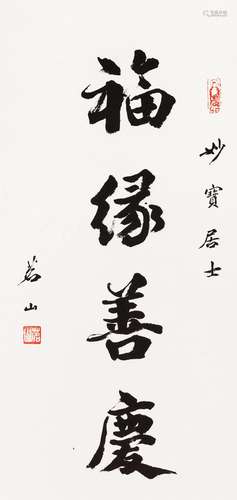 妙寶居士
福緣善慶
若山